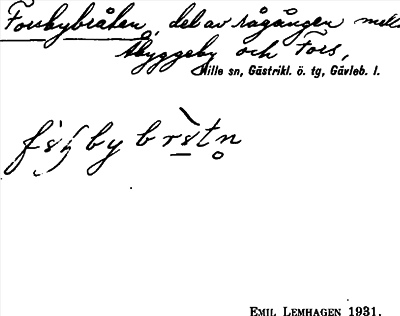 Forsbybråten, del av rågången mell
Åbyggeby och Fors,
Hille sn, Gästrikl. ö. tg, Gävleb. l.
by
EMIL LEMHAGEN 1931.